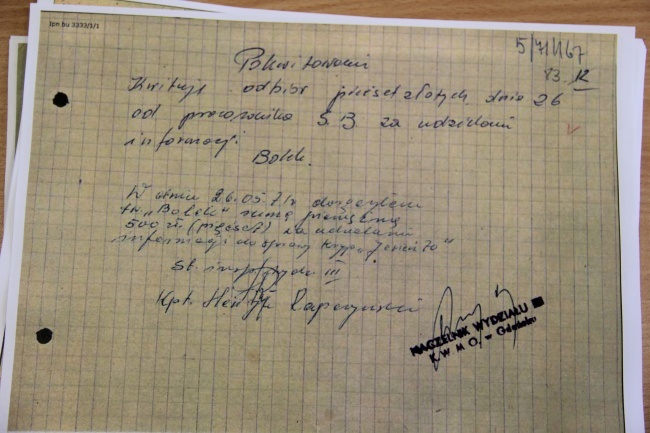 ipn bu 3333/1/1
5/7/1167
83. 12
Pokwitowanie
Kwituję odbiór pięćset złotych dnia 26
od pracownika S.B. za udzielanie
informacji
Bolek.
W dniu 26.05.71r doręczyłem
tw. „Bolek" sumę pieniężną
500 zł (pięćset) za udzielanie
informacji do sprawy kryp. „Jesień 70"
St. insp. Wydz III
Kpt. Henryk
NACZELNIK WYDZIAŁU III
K.W.M.O. w Gdańsku